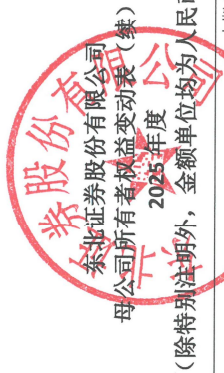 东北证券股份有限公司
母公司所有者权益变动表（续）
2025年度
（除特别注明外，金额单位均为人民
券股份有限公司